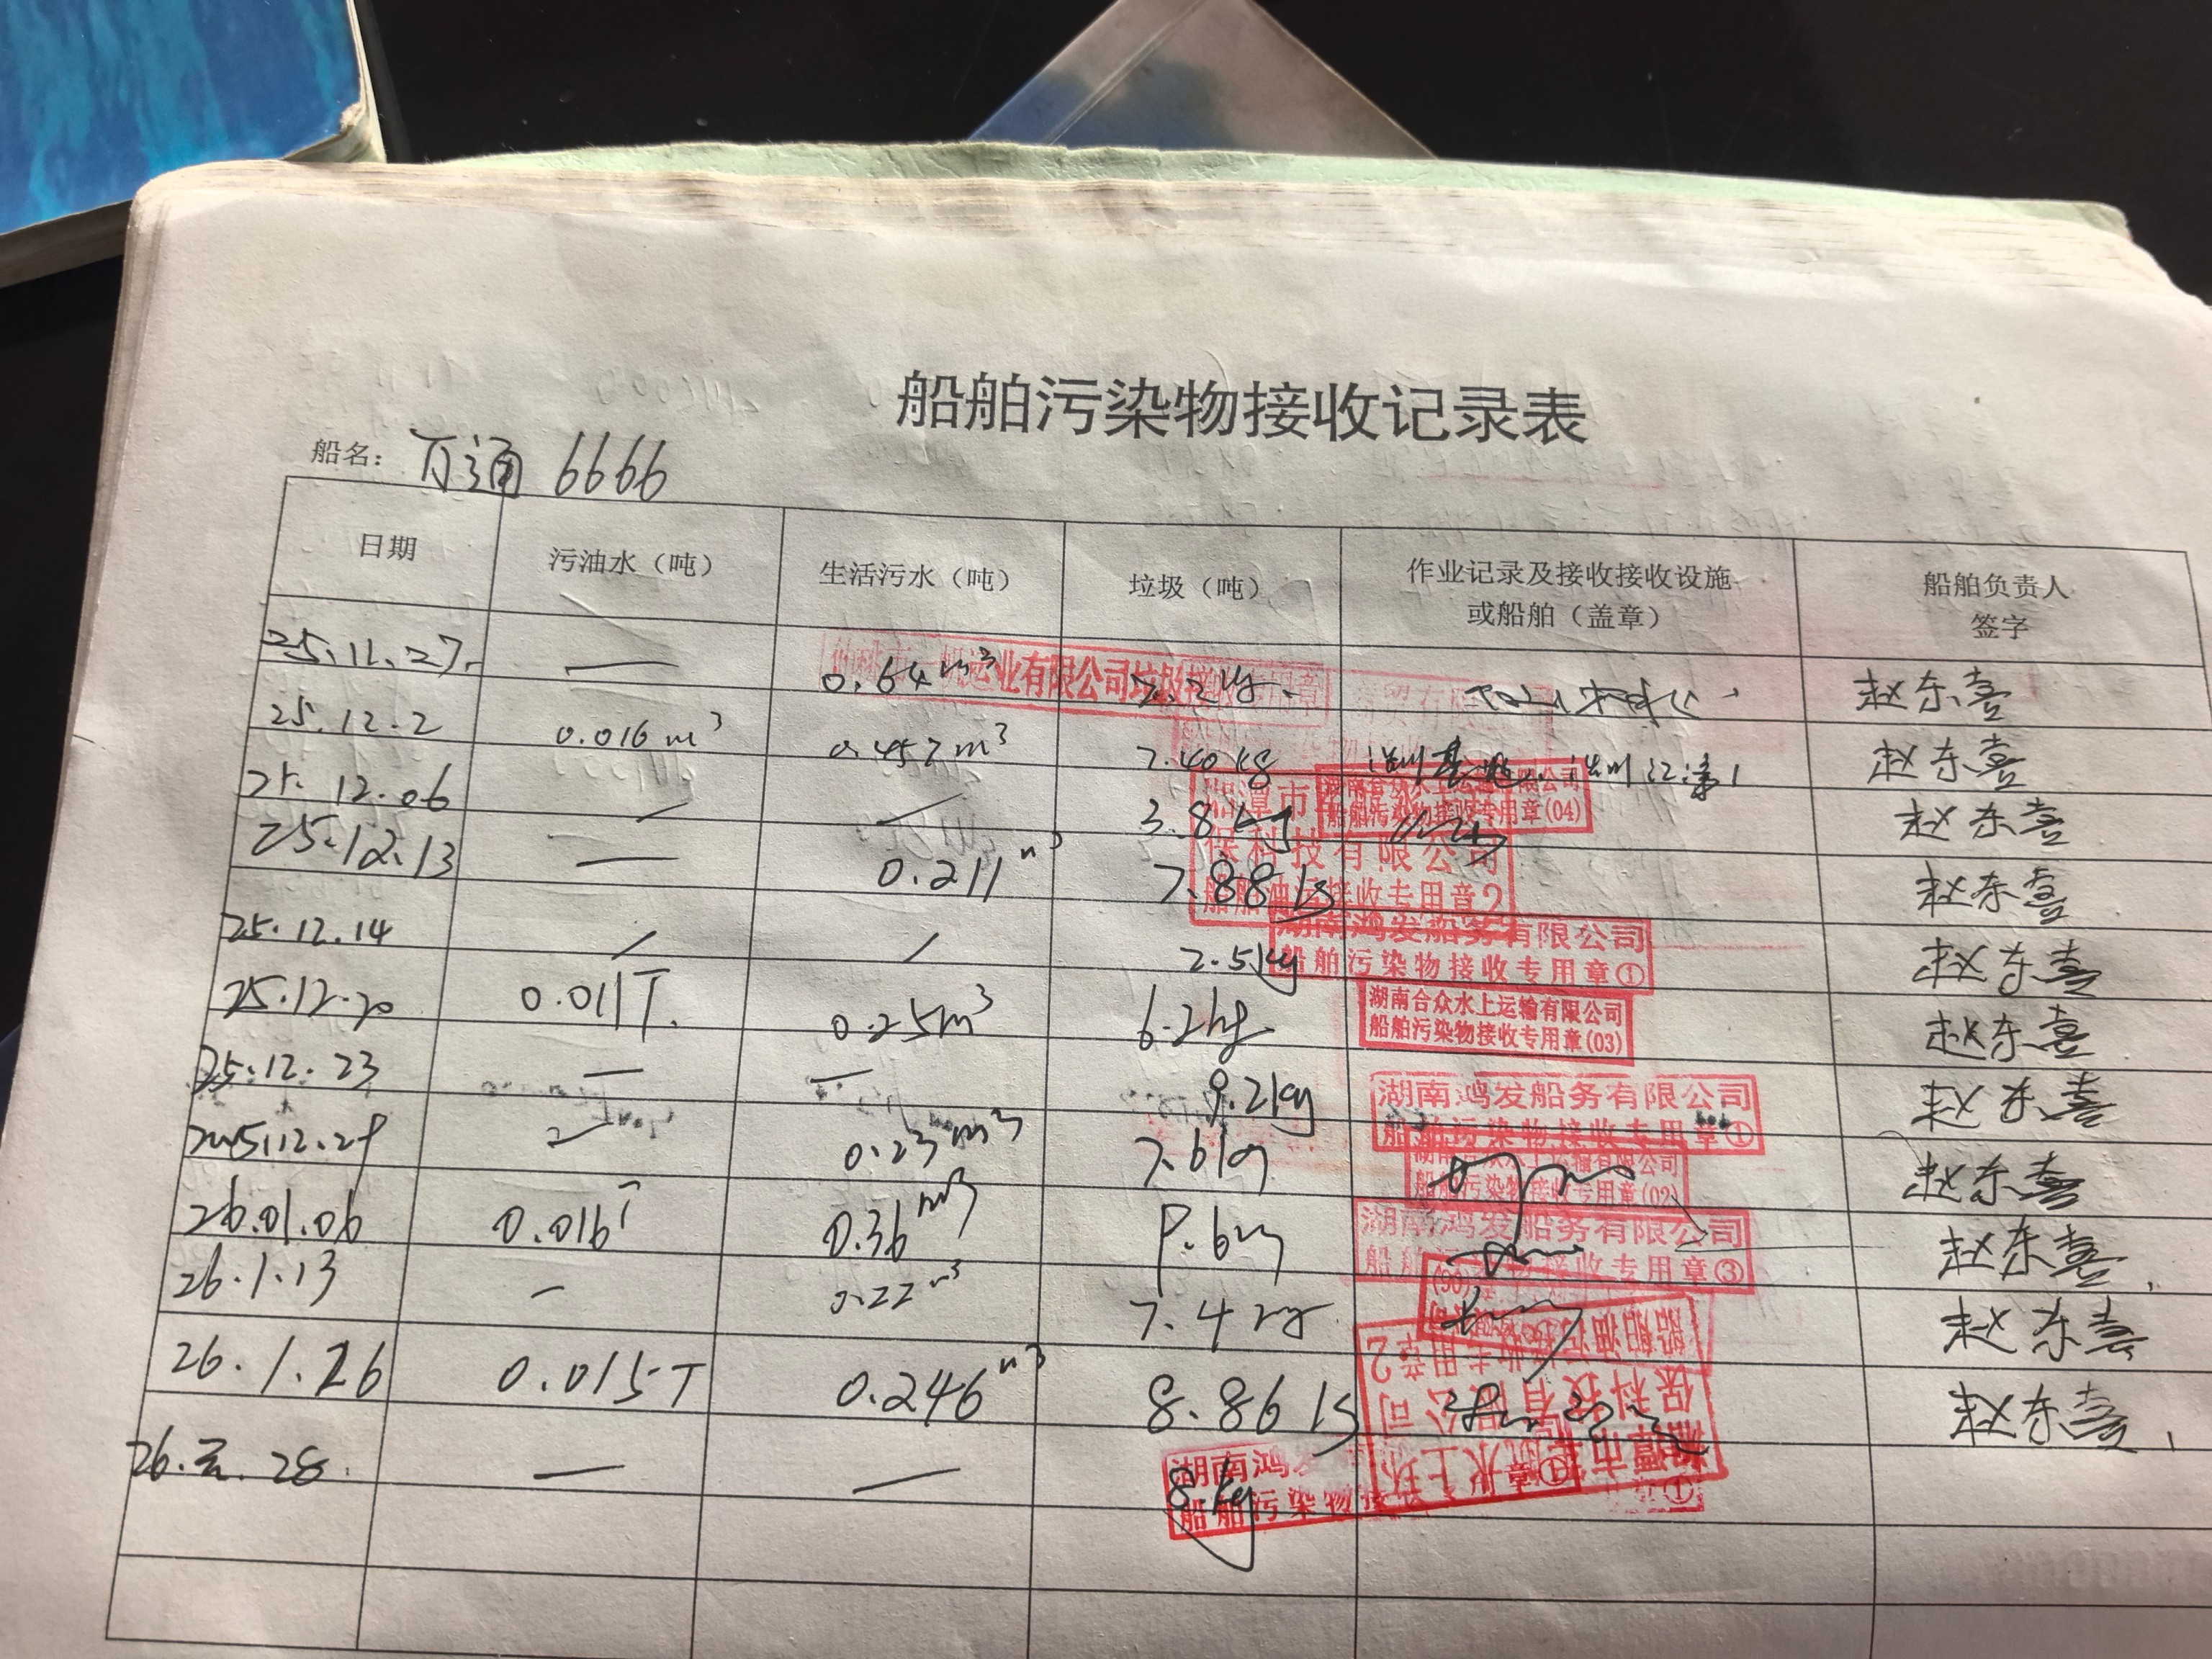 船舶污染物接收记录表
船名: 百通 6666
日期 污油水(吨) 生活污水(吨) 垃圾(吨) 作业记录及接收接收设施或船舶(盖章) 船舶负责人签字
25.11.27. — 0.64m³ 7.2kg. 赵东喜
运业有限公司垃圾接收专用章
25.12.2 0.016m³ 0.457m³ 7.40kg 赵东喜
25.12.06 / / 3.8kg 赵东喜
船舶污染物接收专用章(04)
25.12.13 — 0.211m³ 7.88 赵东喜
湘潭市
保科技有限公司
船舶油污接收专用章2
25.12.14 / / 2.5kg 赵东喜
湖南鸿发船务有限公司
船舶污染物接收专用章①
25.12.20 0.011T. 0.25m³ 6.2kg 赵东喜
湖南合众水上运输有限公司
船舶污染物接收专用章(03)
25.12.23 — — 9.2kg 赵东喜
湖南鸿发船务有限公司
船舶污染物接收专用章①
0.23m³ 7.6kg 赵东喜
船舶污染物接收专用章(02)
26.01.06 0.016T 0.36m³ 赵东喜
湖南鸿发船务有限公司
船舶污染物接收专用章③
26.1.13 — 0.22m³ 7.4kg 赵东喜
26.1.26 0.015T 0.246m³ 8.86 赵东喜
湘潭市 航水上环
保科技有限公司
船舶油污接收专用章2
26. 28. — — 8kg
湖南鸿
船舶污染物接